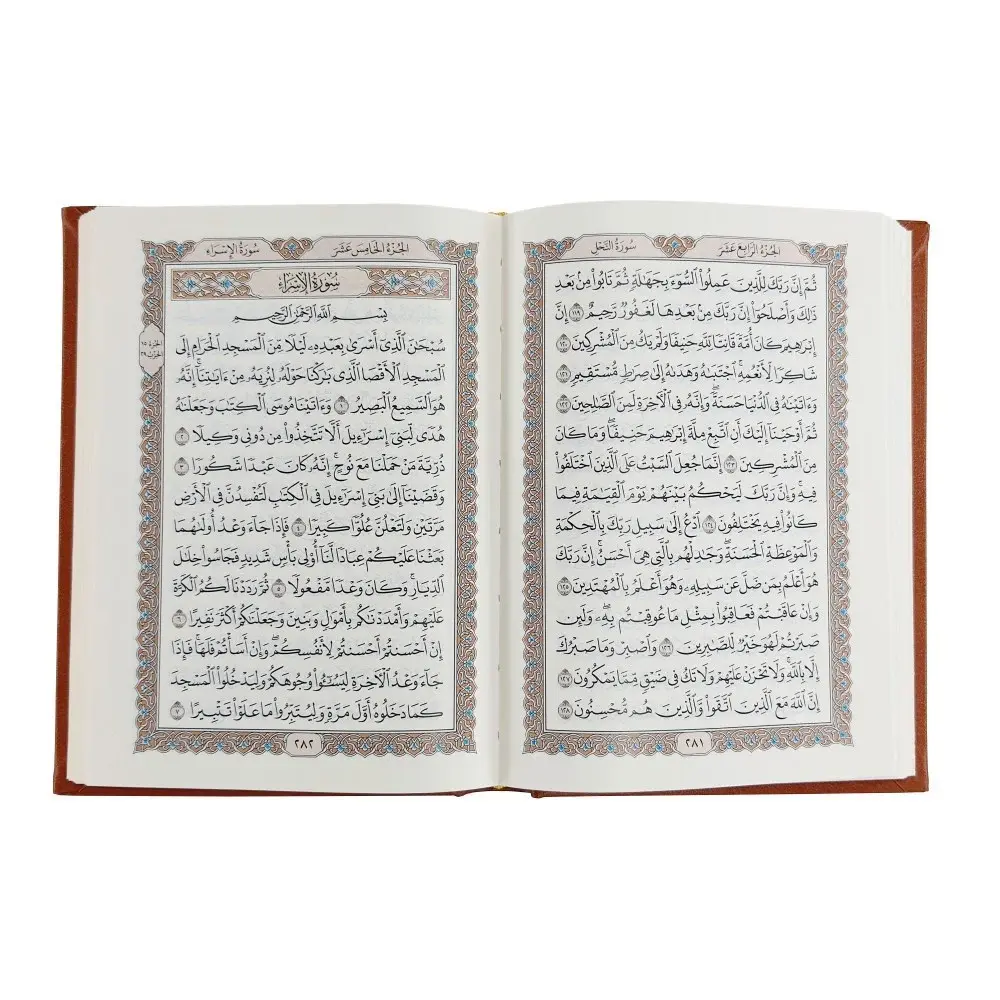 الجُزْءُ الرَّابِعَ عَشَرَ
سُورَةُ النَّحْلِ
ثُمَّ إِنَّ رَبَّكَ لِلَّذِينَ عَمِلُوا۟ ٱلسُّوٓءَ بِجَهَٰلَةٍ ثُمَّ تَابُوا۟ مِنۢ بَعْدِ
ذَٰلِكَ وَأَصْلَحُوٓا۟ إِنَّ رَبَّكَ مِنۢ بَعْدِهَا لَغَفُورٌ رَّحِيمٌ ١١٩ إِنَّ
إِبْرَٰهِيمَ كَانَ أُمَّةً قَانِتًا لِّلَّهِ حَنِيفًا وَلَمْ يَكُ مِنَ ٱلْمُشْرِكِينَ ١٢٠
شَاكِرًا لِّأَنْعُمِهِ ۚ ٱجْتَبَىٰهُ وَهَدَىٰهُ إِلَىٰ صِرَٰطٍ مُّسْتَقِيمٍ ١٢١
وَءَاتَيْنَٰهُ فِى ٱلدُّنْيَا حَسَنَةً ۖ وَإِنَّهُۥ فِى ٱلْءَاخِرَةِ لَمِنَ ٱلصَّٰلِحِينَ ١٢٢
ثُمَّ أَوْحَيْنَآ إِلَيْكَ أَنِ ٱتَّبِعْ مِلَّةَ إِبْرَٰهِيمَ حَنِيفًا ۖ وَمَا كَانَ
مِنَ ٱلْمُشْرِكِينَ ١٢٣ إِنَّمَا جُعِلَ ٱلسَّبْتُ عَلَى ٱلَّذِينَ ٱخْتَلَفُوا۟
فِيهِ ۚ وَإِنَّ رَبَّكَ لَيَحْكُمُ بَيْنَهُمْ يَوْمَ ٱلْقِيَٰمَةِ فِيمَا
كَانُوا۟ فِيهِ يَخْتَلِفُونَ ١٢٤ ٱدْعُ إِلَىٰ سَبِيلِ رَبِّكَ بِٱلْحِكْمَةِ
وَٱلْمَوْعِظَةِ ٱلْحَسَنَةِ ۖ وَجَٰدِلْهُم بِٱلَّتِى هِىَ أَحْسَنُ ۚ إِنَّ رَبَّكَ
هُوَ أَعْلَمُ بِمَن ضَلَّ عَن سَبِيلِهِۦ ۖ وَهُوَ أَعْلَمُ بِٱلْمُهْتَدِينَ ١٢٥
وَإِنْ عَاقَبْتُمْ فَعَاقِبُوا۟ بِمِثْلِ مَا عُوقِبْتُم بِهِۦ ۖ وَلَئِن
صَبَرْتُمْ لَهُوَ خَيْرٌ لِّلصَّٰبِرِينَ ١٢٦ وَٱصْبِرْ وَمَا صَبْرُكَ
إِلَّا بِٱللَّهِ ۚ وَلَا تَحْزَنْ عَلَيْهِمْ وَلَا تَكُ فِى ضَيْقٍ مِّمَّا يَمْكُرُونَ ١٢٧
إِنَّ ٱللَّهَ مَعَ ٱلَّذِينَ ٱتَّقَوا۟ وَّٱلَّذِينَ هُم مُّحْسِنُونَ ١٢٨
٢٨١
الجُزْءُ الخَامِسَ عَشَرَ
سُورَةُ الإِسْرَاءِ
سُورَةُ الإِسْرَاءِ
بِسْمِ ٱللَّهِ ٱلرَّحْمَٰنِ ٱلرَّحِيمِ
سُبْحَٰنَ ٱلَّذِىٓ أَسْرَىٰ بِعَبْدِهِۦ لَيْلًا مِّنَ ٱلْمَسْجِدِ ٱلْحَرَامِ إِلَى
ٱلْمَسْجِدِ ٱلْأَقْصَا ٱلَّذِى بَٰرَكْنَا حَوْلَهُۥ لِنُرِيَهُۥ مِنْ ءَايَٰتِنَآ ۚ إِنَّهُۥ
هُوَ ٱلسَّمِيعُ ٱلْبَصِيرُ ١ وَءَاتَيْنَا مُوسَى ٱلْكِتَٰبَ وَجَعَلْنَٰهُ
هُدًى لِّبَنِىٓ إِسْرَٰٓءِيلَ أَلَّا تَتَّخِذُوا۟ مِن دُونِى وَكِيلًا ٢
ذُرِّيَّةَ مَنْ حَمَلْنَا مَعَ نُوحٍ ۚ إِنَّهُۥ كَانَ عَبْدًا شَكُورًا ٣
وَقَضَيْنَآ إِلَىٰ بَنِىٓ إِسْرَٰٓءِيلَ فِى ٱلْكِتَٰبِ لَتُفْسِدُنَّ فِى ٱلْأَرْضِ
مَرَّتَيْنِ وَلَتَعْلُنَّ عُلُوًّا كَبِيرًا ٤ فَإِذَا جَآءَ وَعْدُ أُولَىٰهُمَا
بَعَثْنَا عَلَيْكُمْ عِبَادًا لَّنَآ أُو۟لِى بَأْسٍ شَدِيدٍ فَجَاسُوا۟ خِلَٰلَ
ٱلدِّيَارِ ۚ وَكَانَ وَعْدًا مَّفْعُولًا ٥ ثُمَّ رَدَدْنَا لَكُمُ ٱلْكَرَّةَ
عَلَيْهِمْ وَأَمْدَدْنَٰكُم بِأَمْوَٰلٍ وَبَنِينَ وَجَعَلْنَٰكُمْ أَكْثَرَ نَفِيرًا ٦
إِنْ أَحْسَنتُمْ أَحْسَنتُمْ لِأَنفُسِكُمْ ۖ وَإِنْ أَسَأْتُمْ فَلَهَا ۚ فَإِذَا
جَآءَ وَعْدُ ٱلْءَاخِرَةِ لِيَسُـۥٓـُٔوا۟ وُجُوهَكُمْ وَلِيَدْخُلُوا۟ ٱلْمَسْجِدَ
كَمَا دَخَلُوهُ أَوَّلَ مَرَّةٍ وَلِيُتَبِّرُوا۟ مَا عَلَوْا۟ تَتْبِيرًا ٧
الجزء ١٥
الحزب ٢٩
٢٨٢